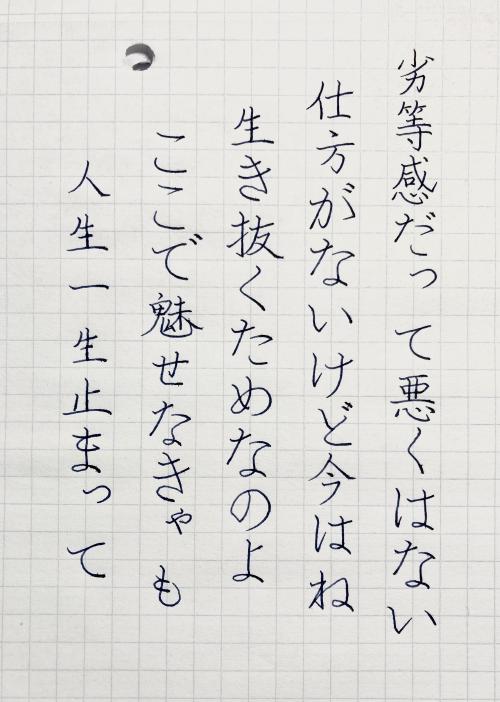 劣等感だって悪くはない
仕方がないけど今はね
生き抜くためなのよ
ここで魅せなきゃも
人生一生止まって